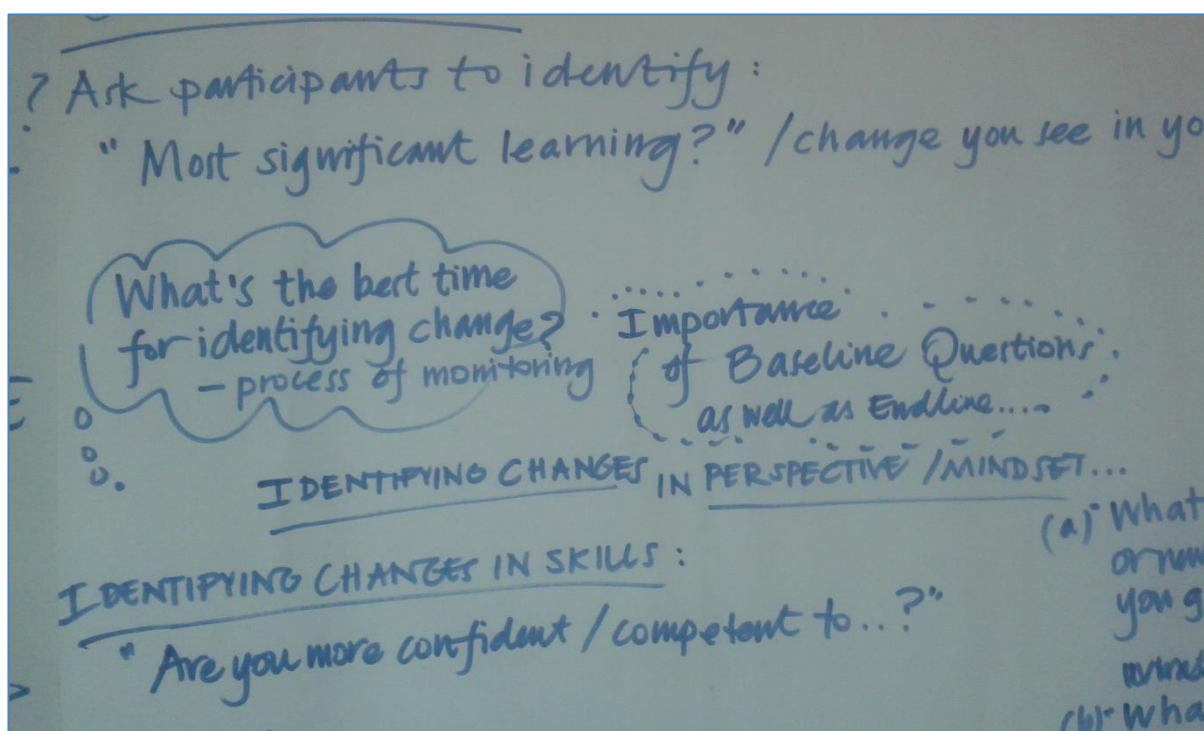 ? Ask participants to identify :
"Most significant learning?" / change you see in yo
What's the best time
for identifying change?
- process of monitoring
Importance
of Baseline Questions
as well as Endline....
IDENTIFYING CHANGES IN PERSPECTIVE / MINDSET...
IDENTIFYING CHANGES IN SKILLS :
"Are you more confident / competent to..?"
(a) What
or
you g
(b) Wha